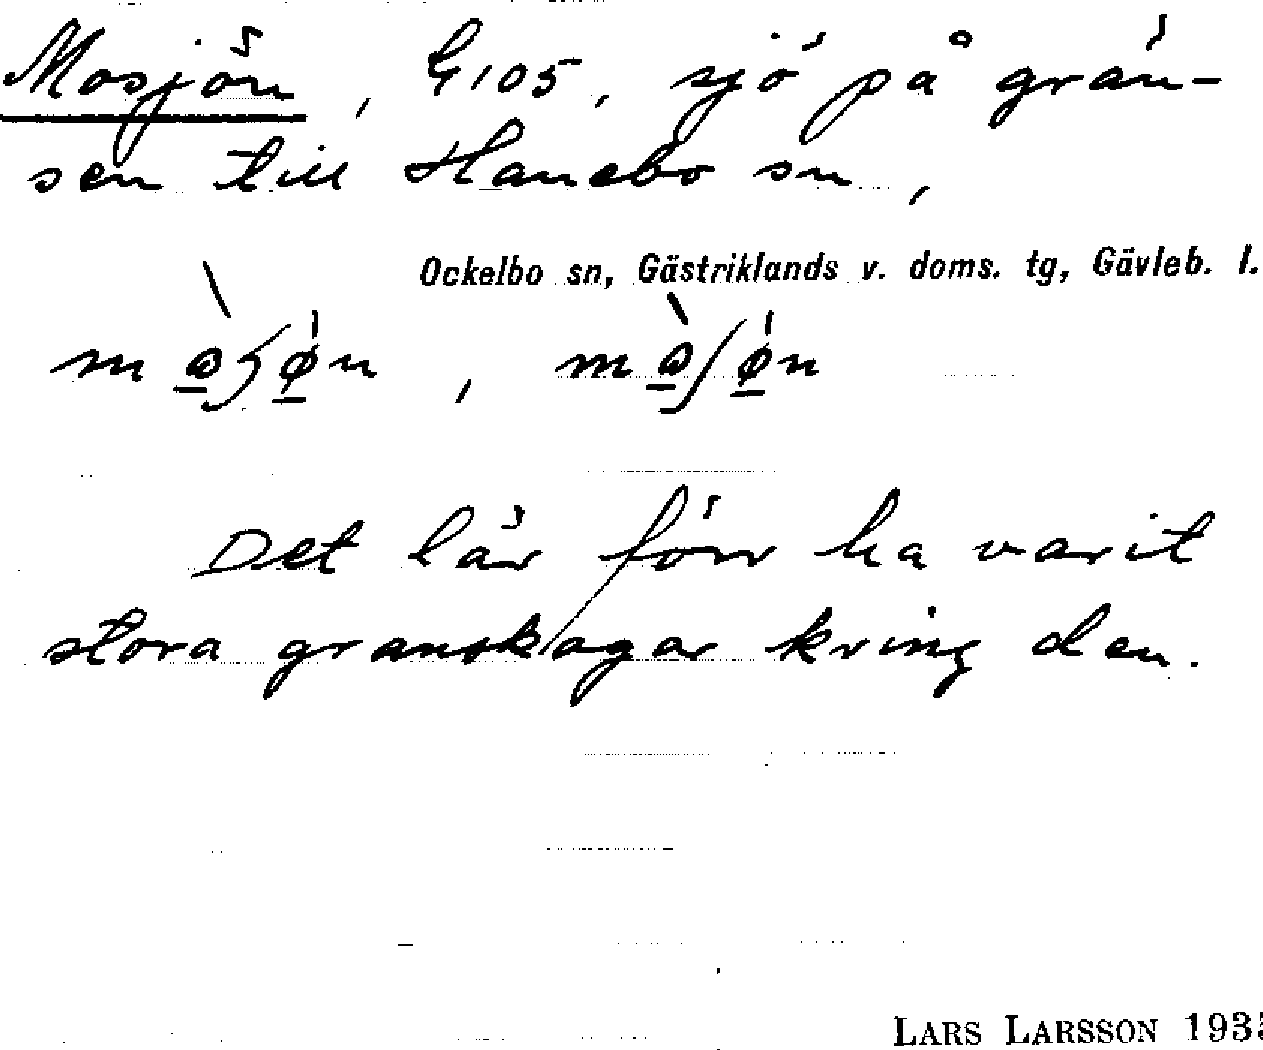 Mosjön, G105, sjö på grän-
sen till Hanebo sn,
Ockelbo sn, Gästriklands v. doms. tg, Gävleb. l.
Det lär förr ha varit
stora granskogar kring den.
LARS LARSSON 1935